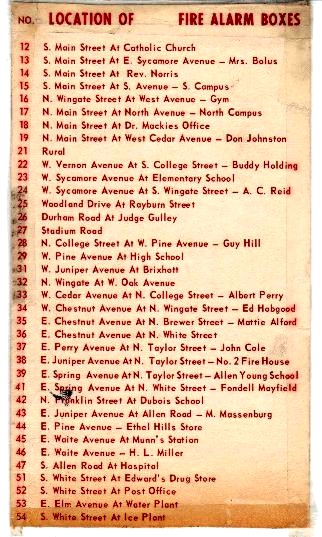 NO. LOCATION OF FIRE ALARM BOXES
12 S. Main Street At Catholic Church
13 S. Main Street At E. Sycamore Avenue – Mrs. Bolus
14 S. Main Street At Rev. Norris
15 S. Main Street At S. Avenue – S. Campus
16 N. Wingate Street At West Avenue – Gym
17 N. Main Street At North Avenue – North Campus
18 N. Main Street At Dr. Mackies Office
19 N. Main Street At West Cedar Avenue – Don Johnston
21 Rural
22 W. Vernon Avenue At S. College Street – Buddy Holding
23 W. Sycamore Avenue At Elementary School
24 W. Sycamore Avenue At S. Wingate Street – A. C. Reid
25 Woodland Drive At Rayburn Street
26 Durham Road At Judge Gulley
27 Stadium Road
28 N. College Street At W. Pine Avenue – Guy Hill
29 W. Pine Avenue At High School
31 W. Juniper Avenue At Brixhott
32 N. Wingate At W. Oak Avenue
33 W. Cedar Avenue At N. College Street – Albert Perry
34 W. Chestnut Avenue At N. Wingate Street – Ed Hobgood
35 E. Chestnut Avenue At N. Brewer Street – Mattie Alford
36 E. Chestnut Avenue At N. White Street
37 E. Perry Avenue At N. Taylor Street – John Cole
38 E. Juniper Avenue At N. Taylor Street – No. 2 Fire House
39 E. Spring Avenue At N. Taylor Street – Allen Young School
41 E. Spring Avenue At N. White Street – Fondell Mayfield
42 N. Franklin Street At Dubois School
43 E. Juniper Avenue At Allen Road – M. Massenburg
44 E. Pine Avenue – Ethel Hills Store
45 E. Waite Avenue At Munn's Station
46 E. Waite Avenue – H. L. Miller
47 S. Allen Road At Hospital
51 S. White Street At Edward's Drug Store
52 S. White Street At Post Office
53 E. Elm Avenue At Water Plant
54 S. White Street At Ice Plant